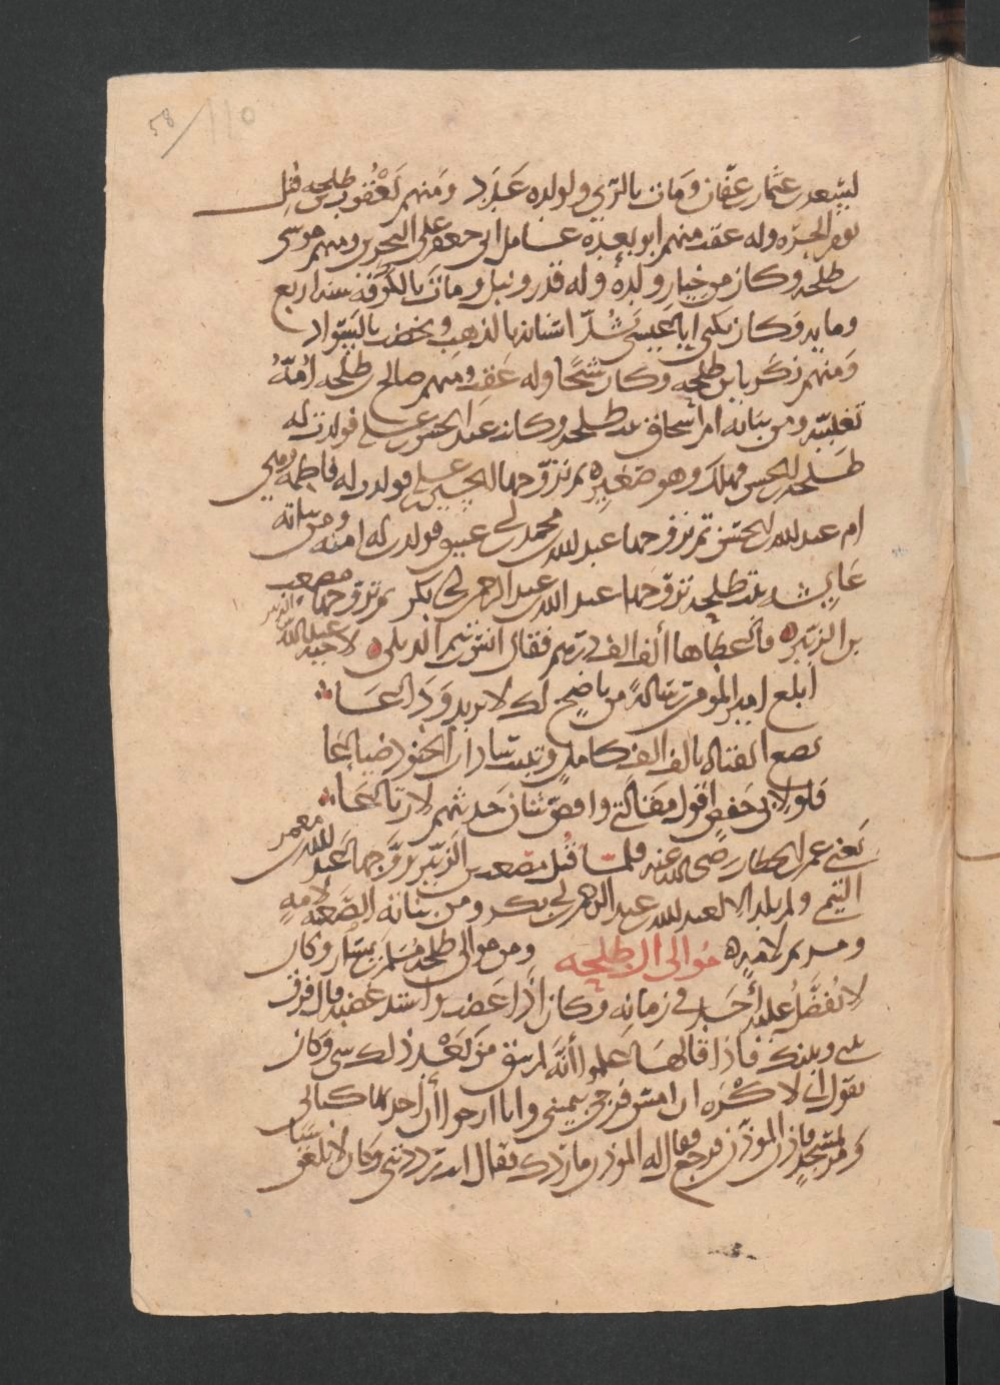 58/110
لسعيد بن عثمان بن عفان ومات بالري ولولده عدد ومنهم يعقوب بن طلحه قتل
يوم الحره وله عقب منهم ابو بعره عامل ابى جعفر على البحرين ومنهم موسى
بن طلحه وكان من خيار ولده وله قدر ونبل ومات بالكوفه سنه اربع
ومايه وكان يكنى ابا عيسى شد اسنانه بالذهب ويخضب بالسواد
ومنهم زكريا بن طلحه وكان سخيا وله عقب ومنهم صالح بن طلحه امه
تغلبيه ومن بناته ام اسحاق بنت طلحه وكانت عند الحسن بن علي فولدت له
طلحه بن الحسن فهلك وهو صغير ثم تزوجها الحسين بن علي فولدت له فاطمه وهي
ام عبد الله بن الحسن ثم تزوجها عبد الله بن محمد بن ابى عتيق فولدت له امنه ومن بناته
عايشه بنت طلحه تزوجها عبد الله بن عبد الرحمن بن ابى بكر ثم تزوجها مصعب
بن الزبير فاعطاها ألف الف درهم فقال انس بن زنيم الديلى لاخيه عبد الله بن الزبير
ابلغ امير المومنين رسالة من ناصح لك لا يريد وداعا
بضع الفتاه بالف الف كامل وتبيت سادات الجنود جياعا
فلو لابى حفص اقول مقالتى واقص شان حديثهم لارتاعا
يعنى عمر بن الخطاب رضى الله عنه فلما قتل مصعب بن الزبير تزوجها عبد الله بن معمر
التيمي ولم تلد الا لعبد الله بن عبد الرحمن بن ابى بكر ومن بناته الصعبه لامه
ومريم لامه موالى ال طلحه ومن موالى طلحه مسلم بن يسار وكان
لا يفضل عليه أحد فى زمانه وكان اذا غضب واشتد غضبه قال فرق
بينى وبينك فاذا قالها علموا أنه لم يبق من بعد ذلك شى وكان
يقول انى لاكره ان امس فرجى بيمينى وانا ارجوا أن اخذ بها كتابى
ومر بمسجد فاذن الموذن فرجع فقال له الموذن ما ردك فقال انت رددتنى وكان لا يلعن شيا